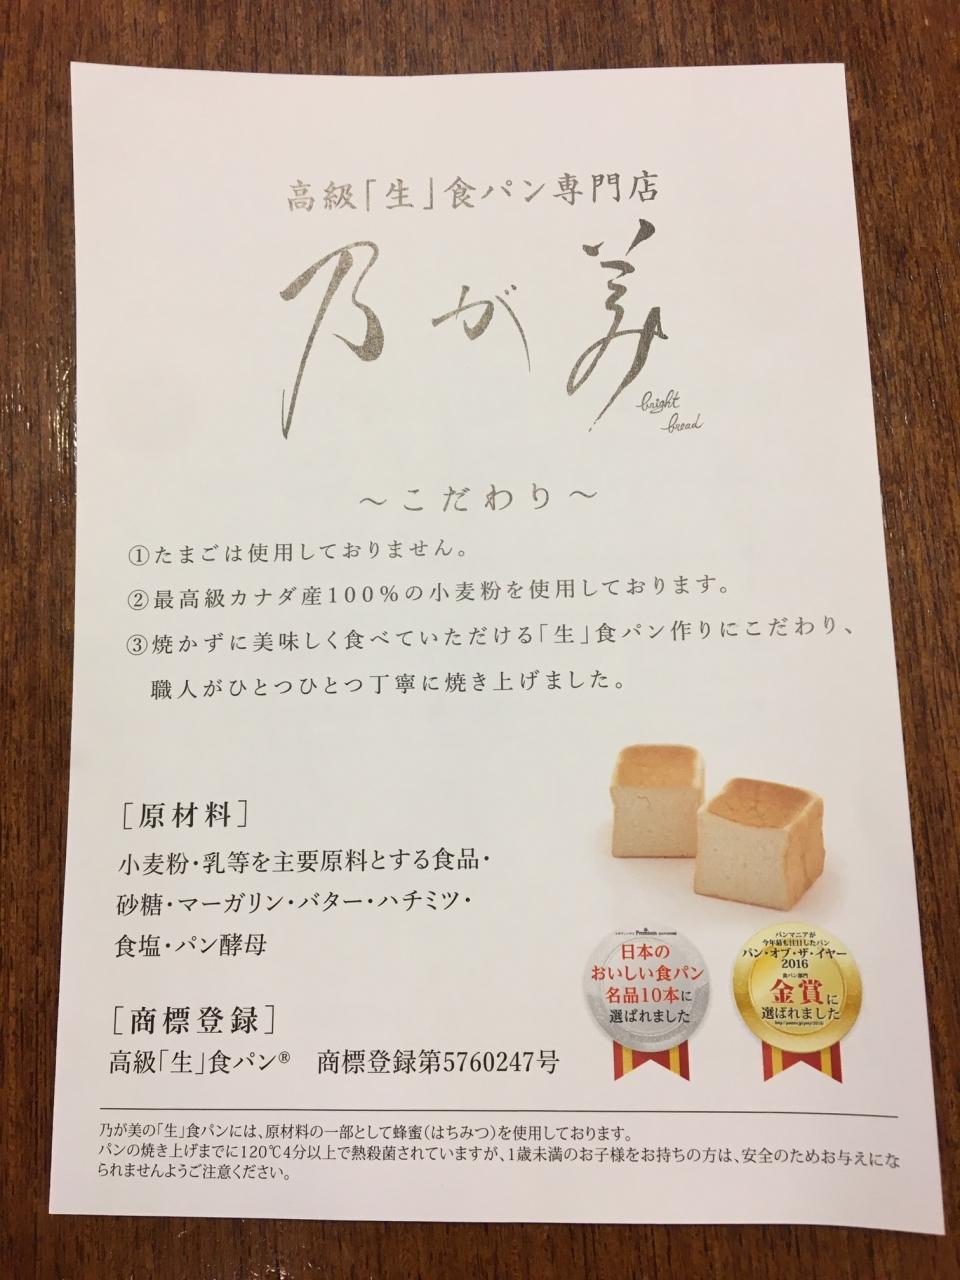 高級「生」食パン専門店
乃が美
bright
bread
～こだわり～
①たまごは使用しておりません。
②最高級カナダ産100%の小麦粉を使用しております。
③焼かずに美味しく食べていただける「生」食パン作りにこだわり、
職人がひとつひとつ丁寧に焼き上げました。
[原材料]
小麦粉・乳等を主要原料とする食品・
砂糖・マーガリン・バター・ハチミツ・
食塩・パン酵母
[商標登録]
高級「生」食パン® 商標登録第5760247号
Premium
日本の
おいしい食パン
名品10本に
選ばれました
パンマニアが
今年最も注目したパン
パン・オブ・ザ・イヤー
2016
食パン部門
金賞に
選ばれました
乃が美の「生」食パンには、原材料の一部として蜂蜜(はちみつ)を使用しております。
パンの焼き上げまでに120℃4分以上で熱殺菌されていますが、1歳未満のお子様をお持ちの方は、安全のためお与えにな
られませんようご注意ください。